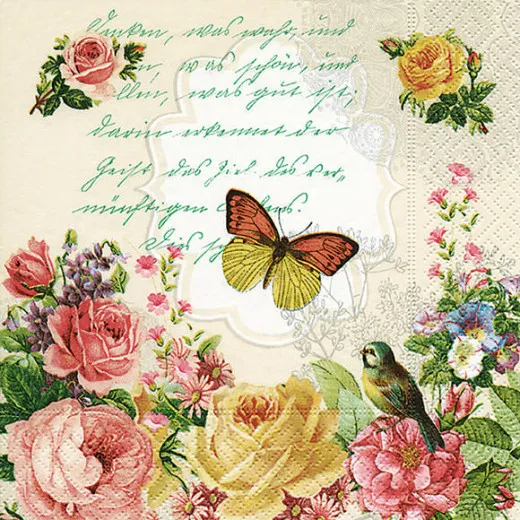 Denken, was wahr, und
n, was schön, und
llen, was gut ist;
darin erkennet der
Geist das Ziel des ver-
nünftigen ens.
Dies